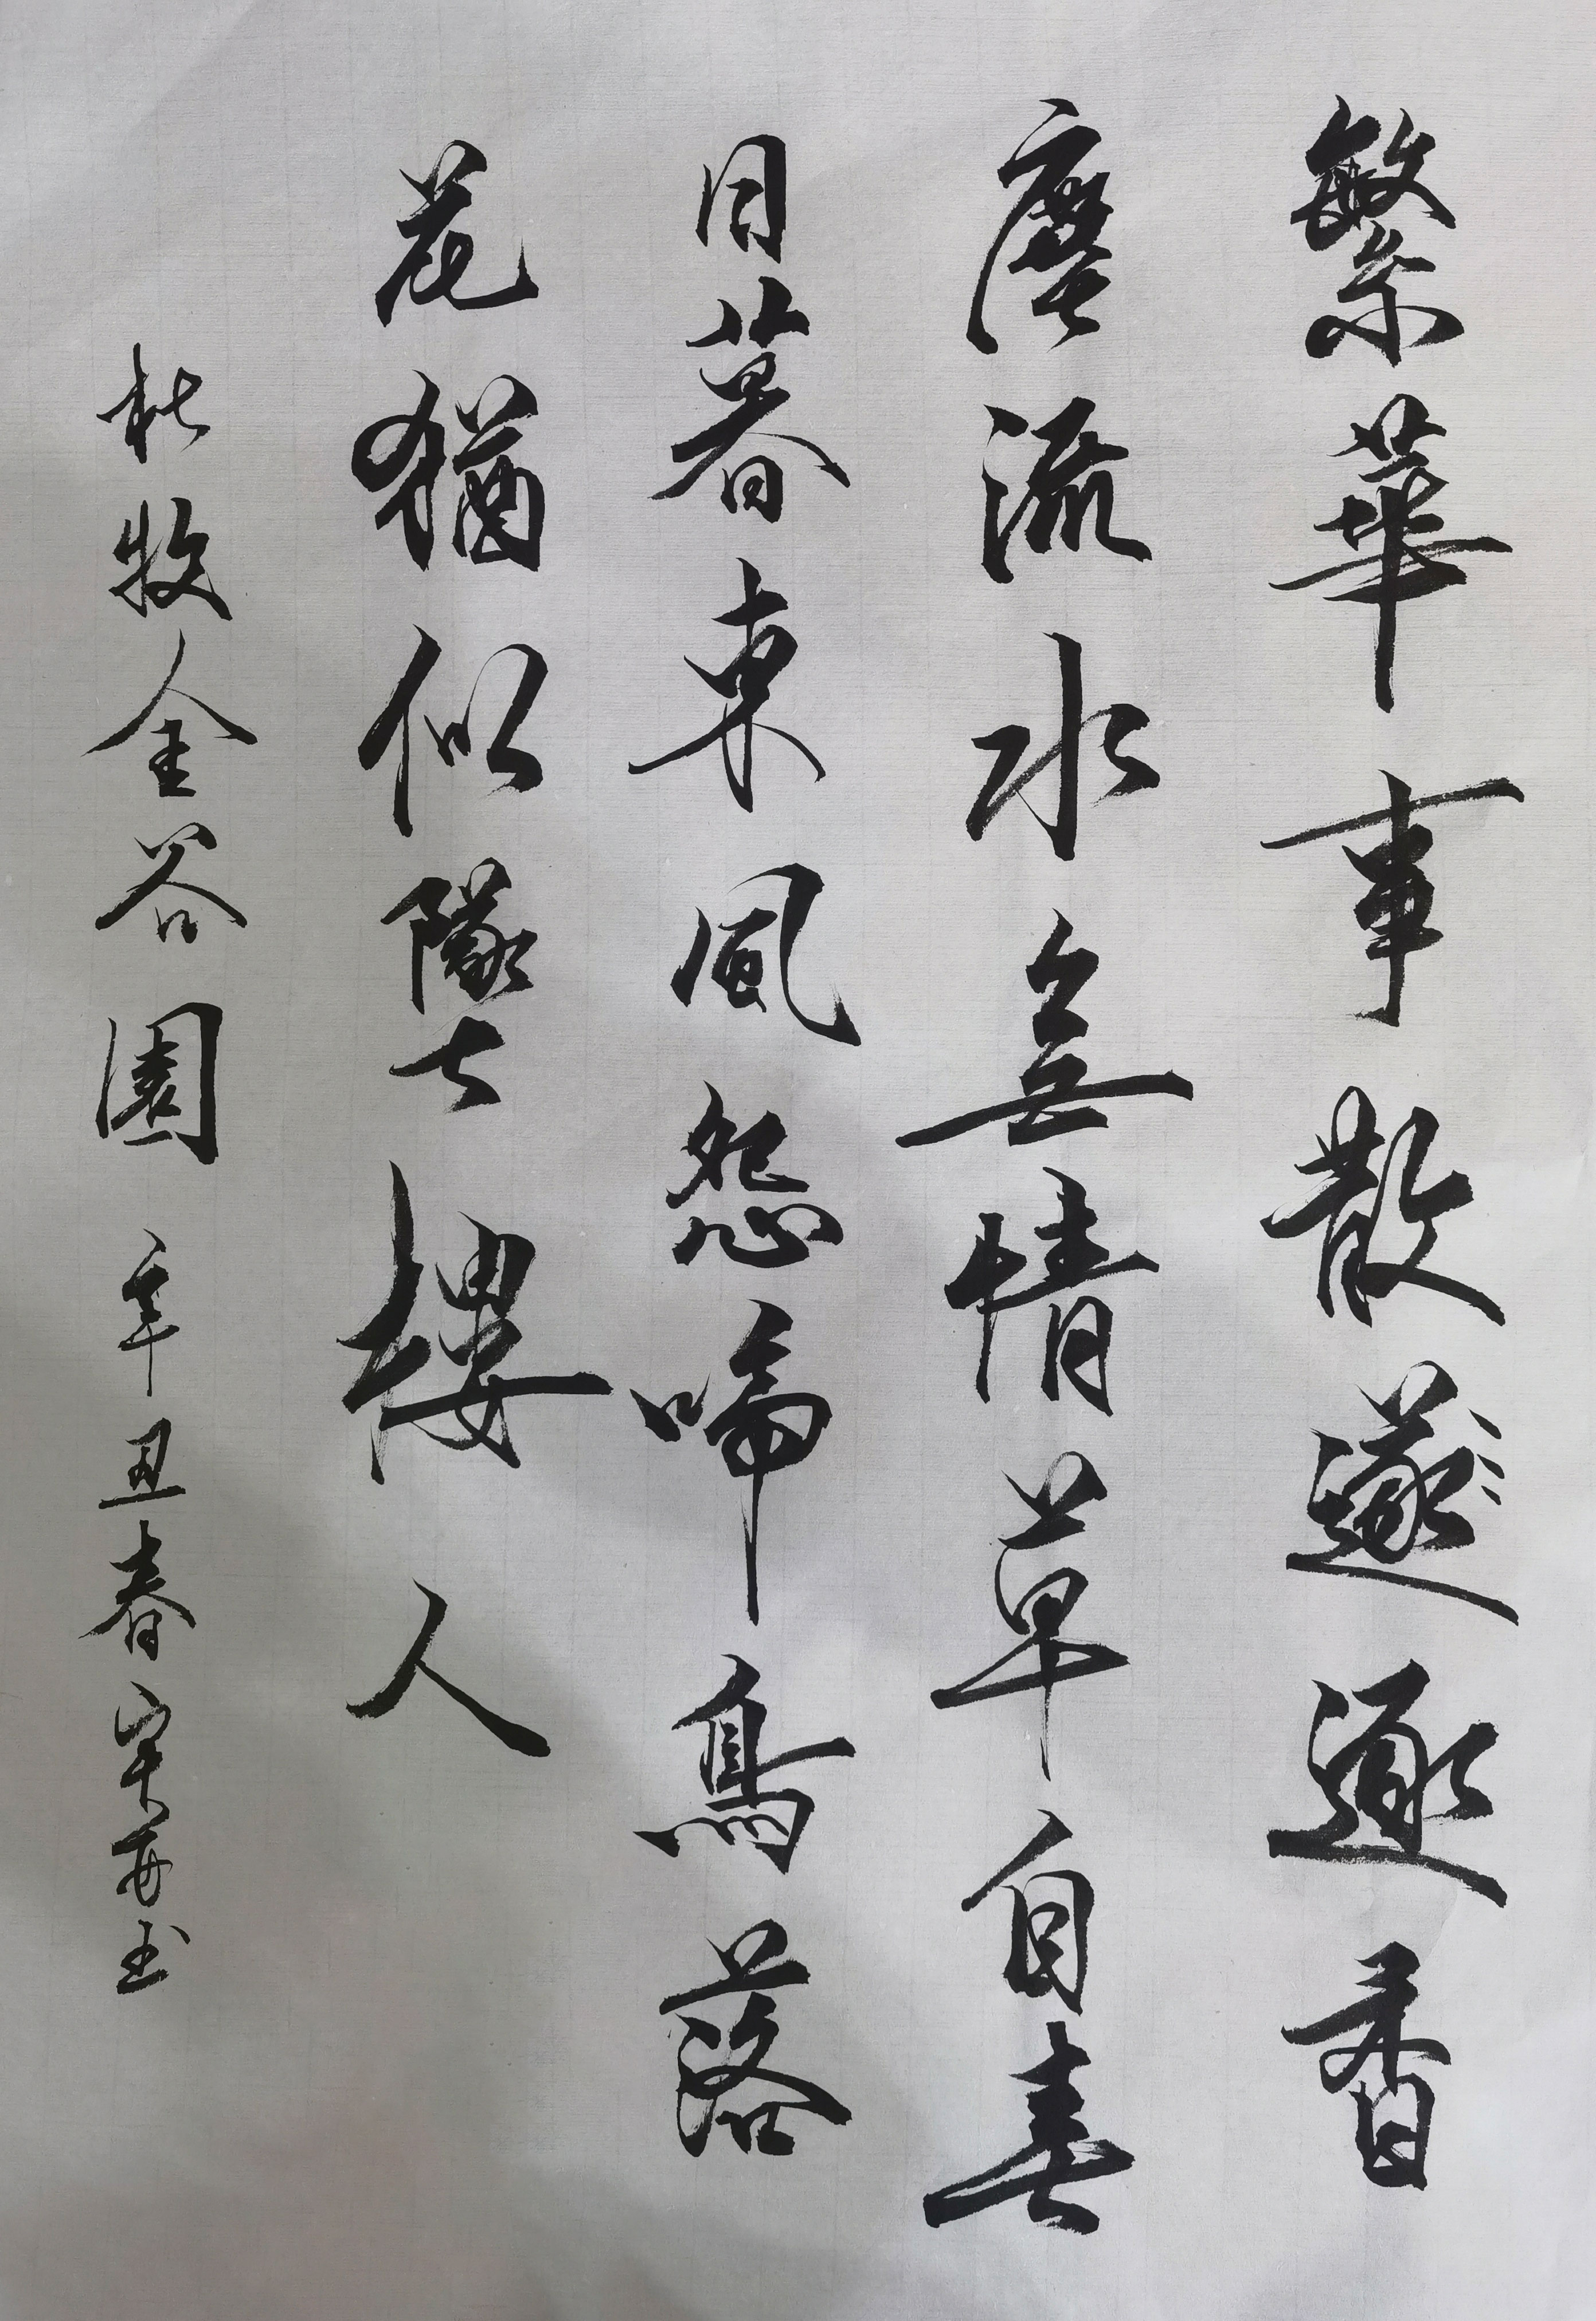 繁華事散遂逐香
塵流水無情草自春
日暮東風怨啼鳥落
花猶似墜樓人
杜牧金谷園 辛丑春